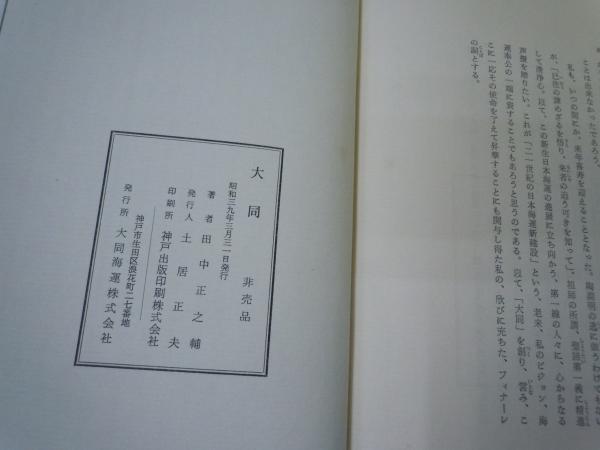 ことは出来なかつたであろう。
私も、いつの間にか、来年喜寿を迎えることとなつた。陶淵明の逸に倣うわけでもない
が、「已往の諫めざるを悟り、来者の追う可きを知つて」、祖師の所謂、聖諦第一義に精進
して清浄心。以て、この新生日本海運の進展に立ち向かう、第一線の人々に、心からなる
声援を贈りたい。これが「二一世紀の日本海運新建設」という、老来、私のビジョン、海
運奉公の一端に資することでもあろうと思うのである。以て、「大同」を創り、営み、こ
こに一応その使命を了えて昇華することにも関与し得た私の、欣びに充ちた、フィナーレ
の詞とする。
大同 非売品
昭和三九年三月三一日発行
著者 田中正之輔
発行人 土居正夫
印刷所 神戸出版印刷株式会社
神戸市生田区浪花町二七番地
発行所 大同海運株式会社